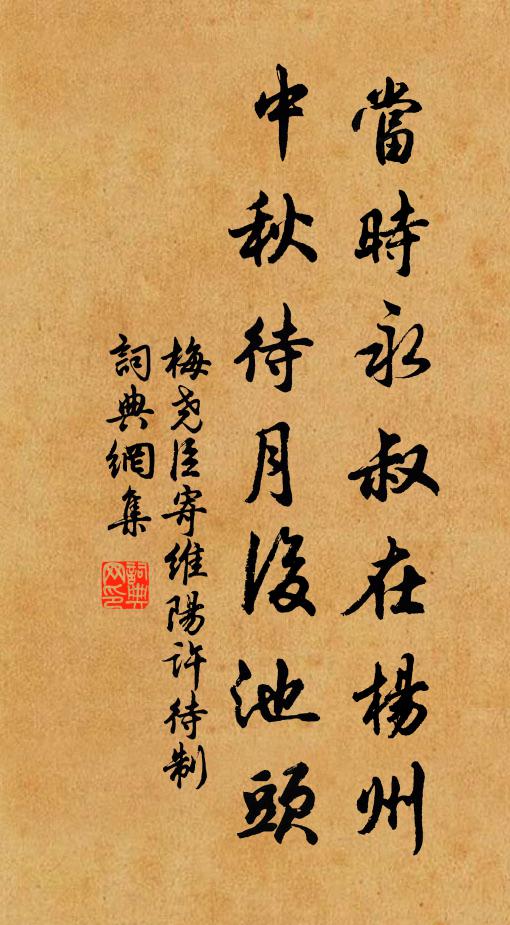 當時永叔在楊州
中秋待月後池頭
梅尧臣寄維陽許待制
詞典網集
詞典网印